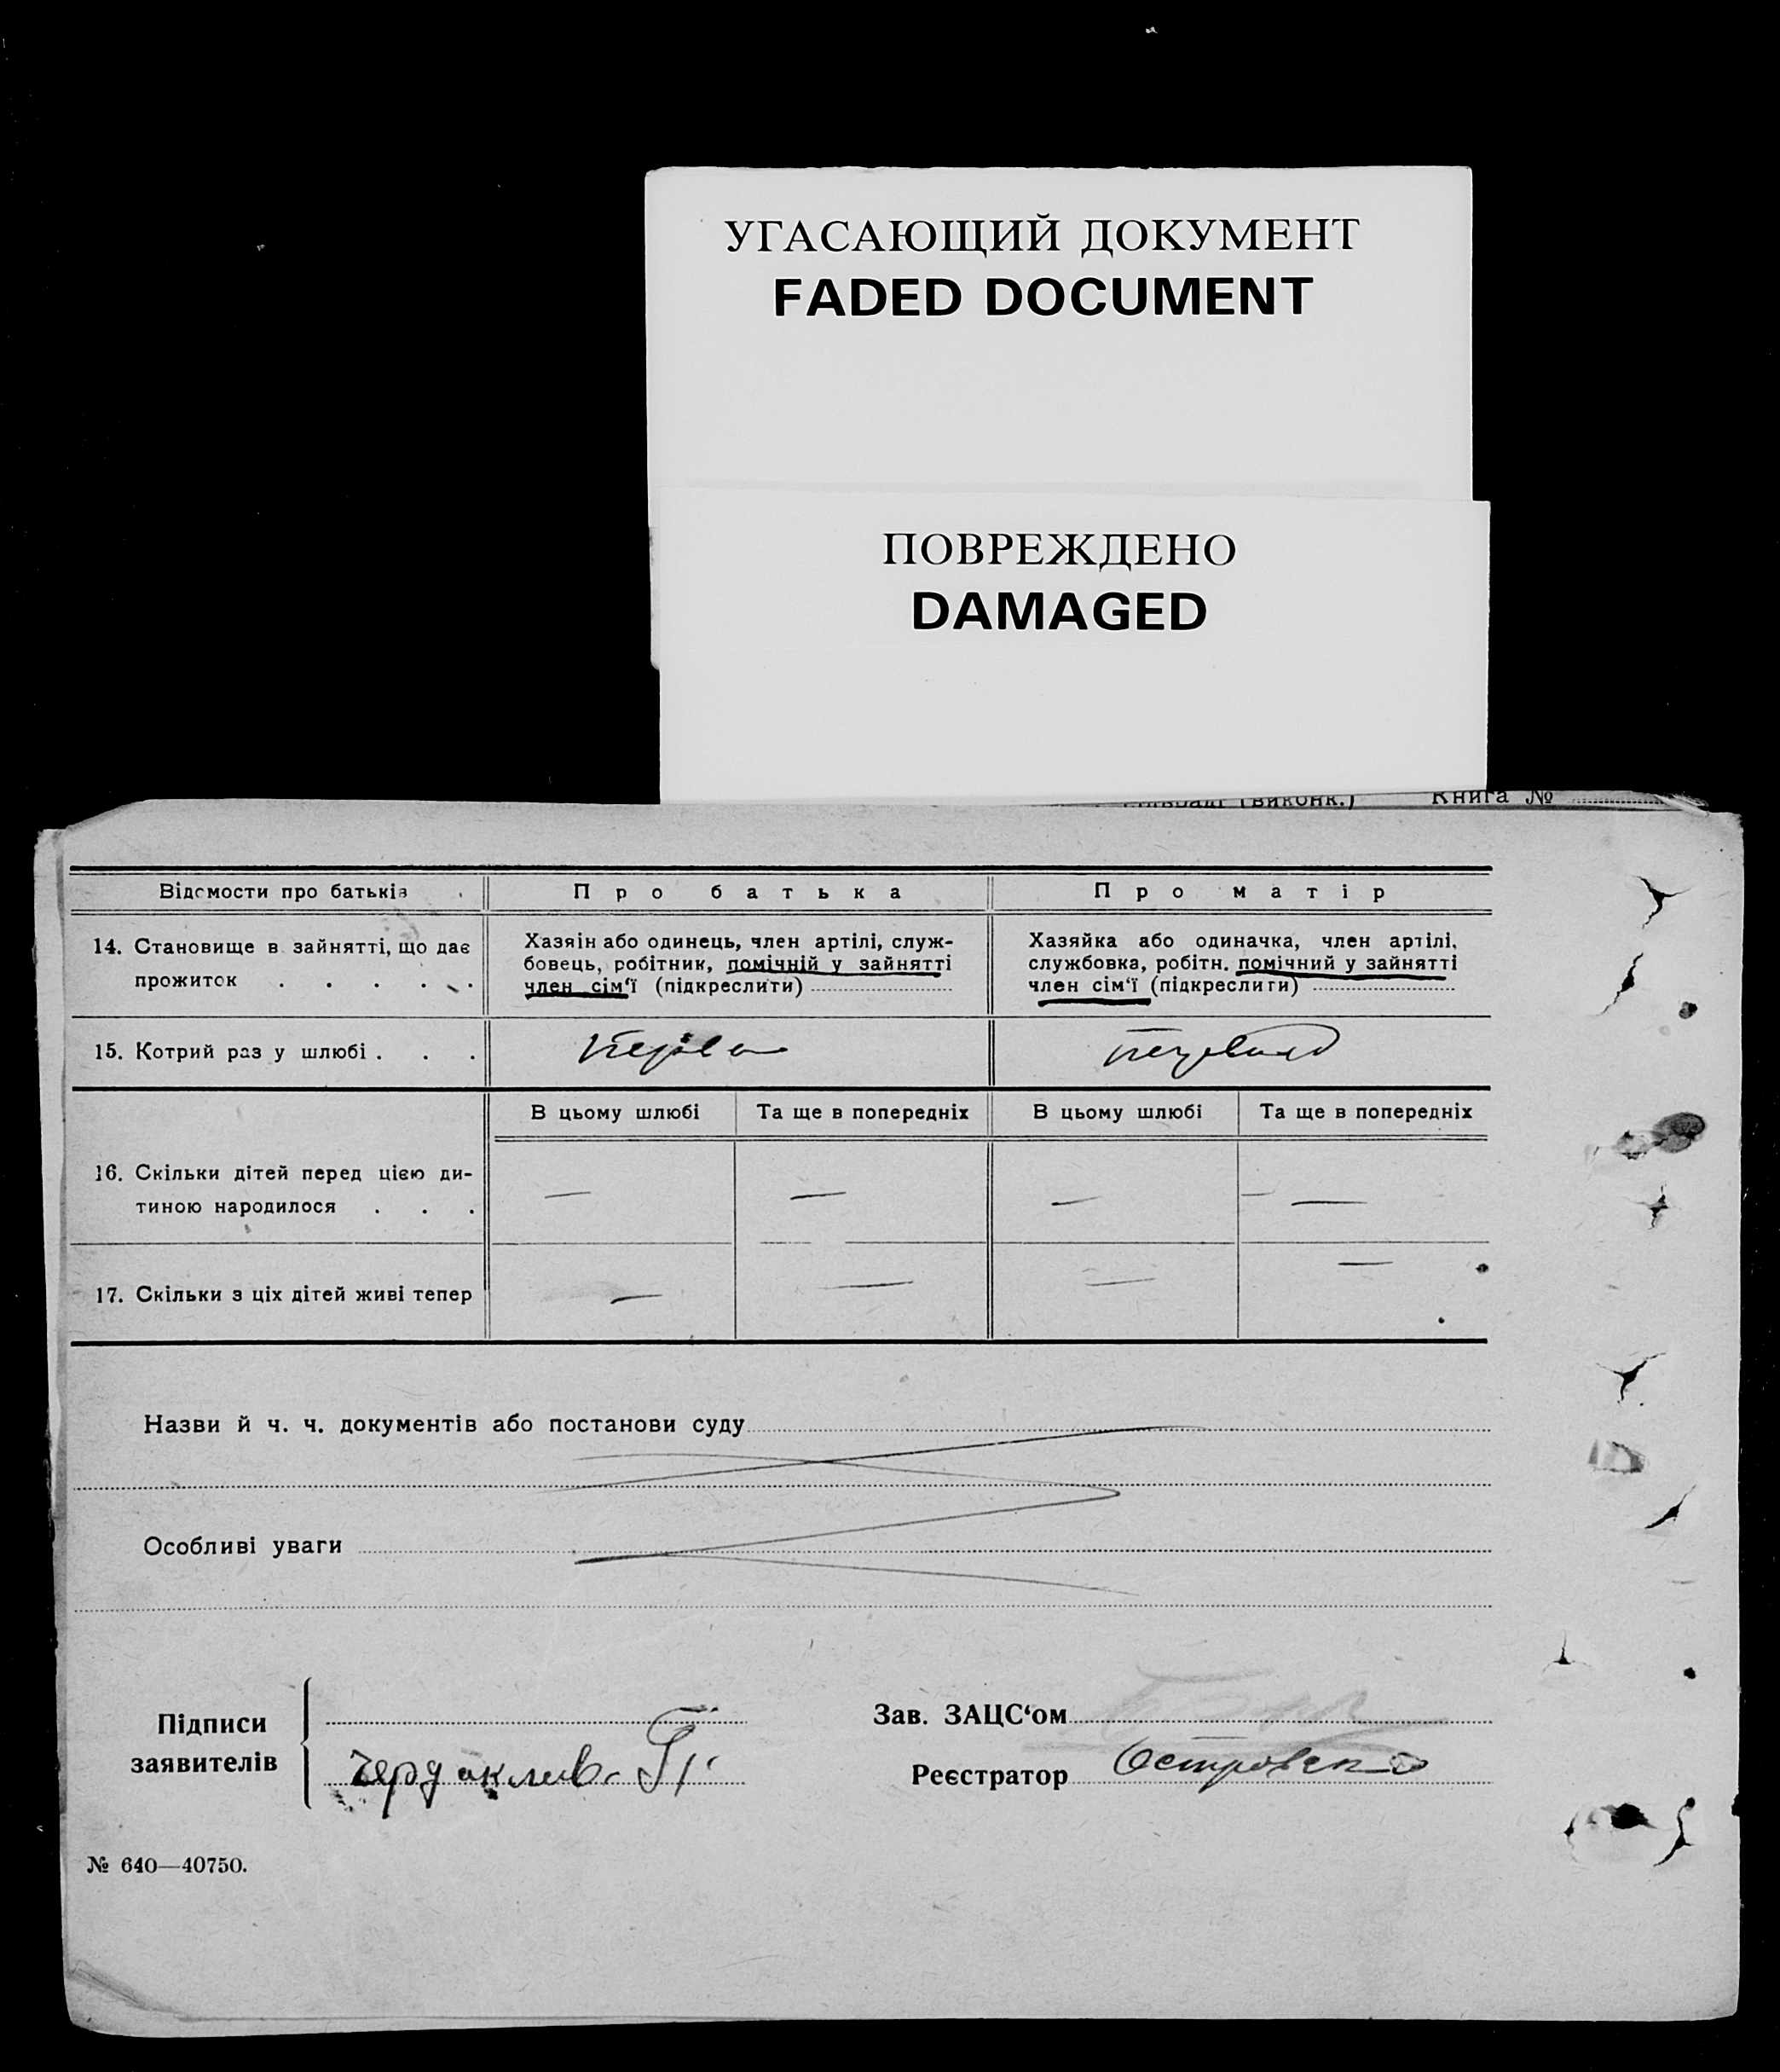 УГАСАЮЩИЙ ДОКУМЕНТ
FADED DOCUMENT
ПОВРЕЖДЕНО
DAMAGED
(виконк.) Книга №
Відомости про батьків Про батька Про матір
14. Становище в зайнятті, що дає прожиток . . . . .
Хазяін або одинець, член артілі, служ-
бовець, робітник, помічній у зайнятті
член сім'ї (підкреслити)
Хазяйка або одиначка, член артілі,
службовка, робітн. помічний у зайнятті
член сім'ї (підкреслиги)
15. Котрий раз у шлюбі . . .
В цьому шлюбі Та ще в попередніх В цьому шлюбі Та ще в попередніх
16. Скільки дітей перед цією ди-
тиною народилося . . . — — — —
17. Скільки з ціх дітей живі тепер — — — —
Назви й ч. ч. документів або постанови суду
Особливі уваги
Підписи
заявителів
Зав. ЗАЦС'ом
Реєстратор
№ 640—40750.